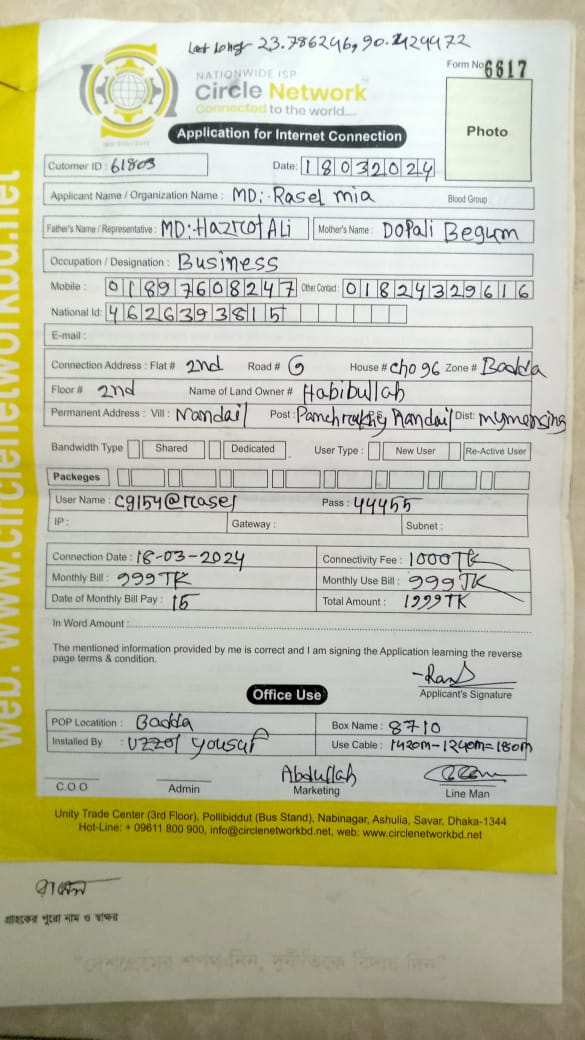 Lat Long- 23.786246, 90.424472
Form No 6617
NATIONWIDE ISP
Circle Network
Connected to the world....
Application for Internet Connection
Photo
Cutomer ID : 61803 Date: 18032024
Applicant Name / Organization Name : MD: Rasel mia Blood Group
Father's Name / Representative : MD: Hazrot Ali Mother's Name : Dopali Begum
Occupation / Designation : Business
Mobile : 01897608247 Other Contact : 01824329616
National Id: 4626393815
E-mail :
Connection Address : Flat # 2nd Road # G House # cho 96 Zone # Badda
Floor # 2nd Name of Land Owner # Habibullah
Permanent Address : Vill : Nandail Post : Nandail Dist: mymensing
Bandwidth Type Shared Dedicated User Type : New User Re-Active User
Packeges
User Name : cg154@rasel Pass : 44455
IP : Gateway : Subnet :
Connection Date : 18-03-2024 Connectivity Fee : 1000 TK
Monthly Bill : 999 TK Monthly Use Bill : 999 TK
Date of Monthly Bill Pay : 15 Total Amount : 1999 TK
In Word Amount :
The mentioned information provided by me is correct and I am signing the Application learning the reverse
page terms & condition.
Applicant's Signature
Office Use
POP Locatition : Badda Box Name : 8710
Installed By : Uzzol yousuf Use Cable : 1420m-1240m=180m
Abdullah
C.O.O Admin Marketing Line Man
Unity Trade Center (3rd Floor), Pollibiddut (Bus Stand), Nabinagar, Ashulia, Savar, Dhaka-1344
Hot-Line: + 09611 800 900, info@circlenetworkbd.net, web: www.circlenetworkbd.net
web: www.circlenetworkbd.net
রাসেল
গ্রাহকের পুরো নাম ও স্বাক্ষর
"দেশপ্রেমের শপথ নিন, দুর্নীতিকে বিদায় দিন"